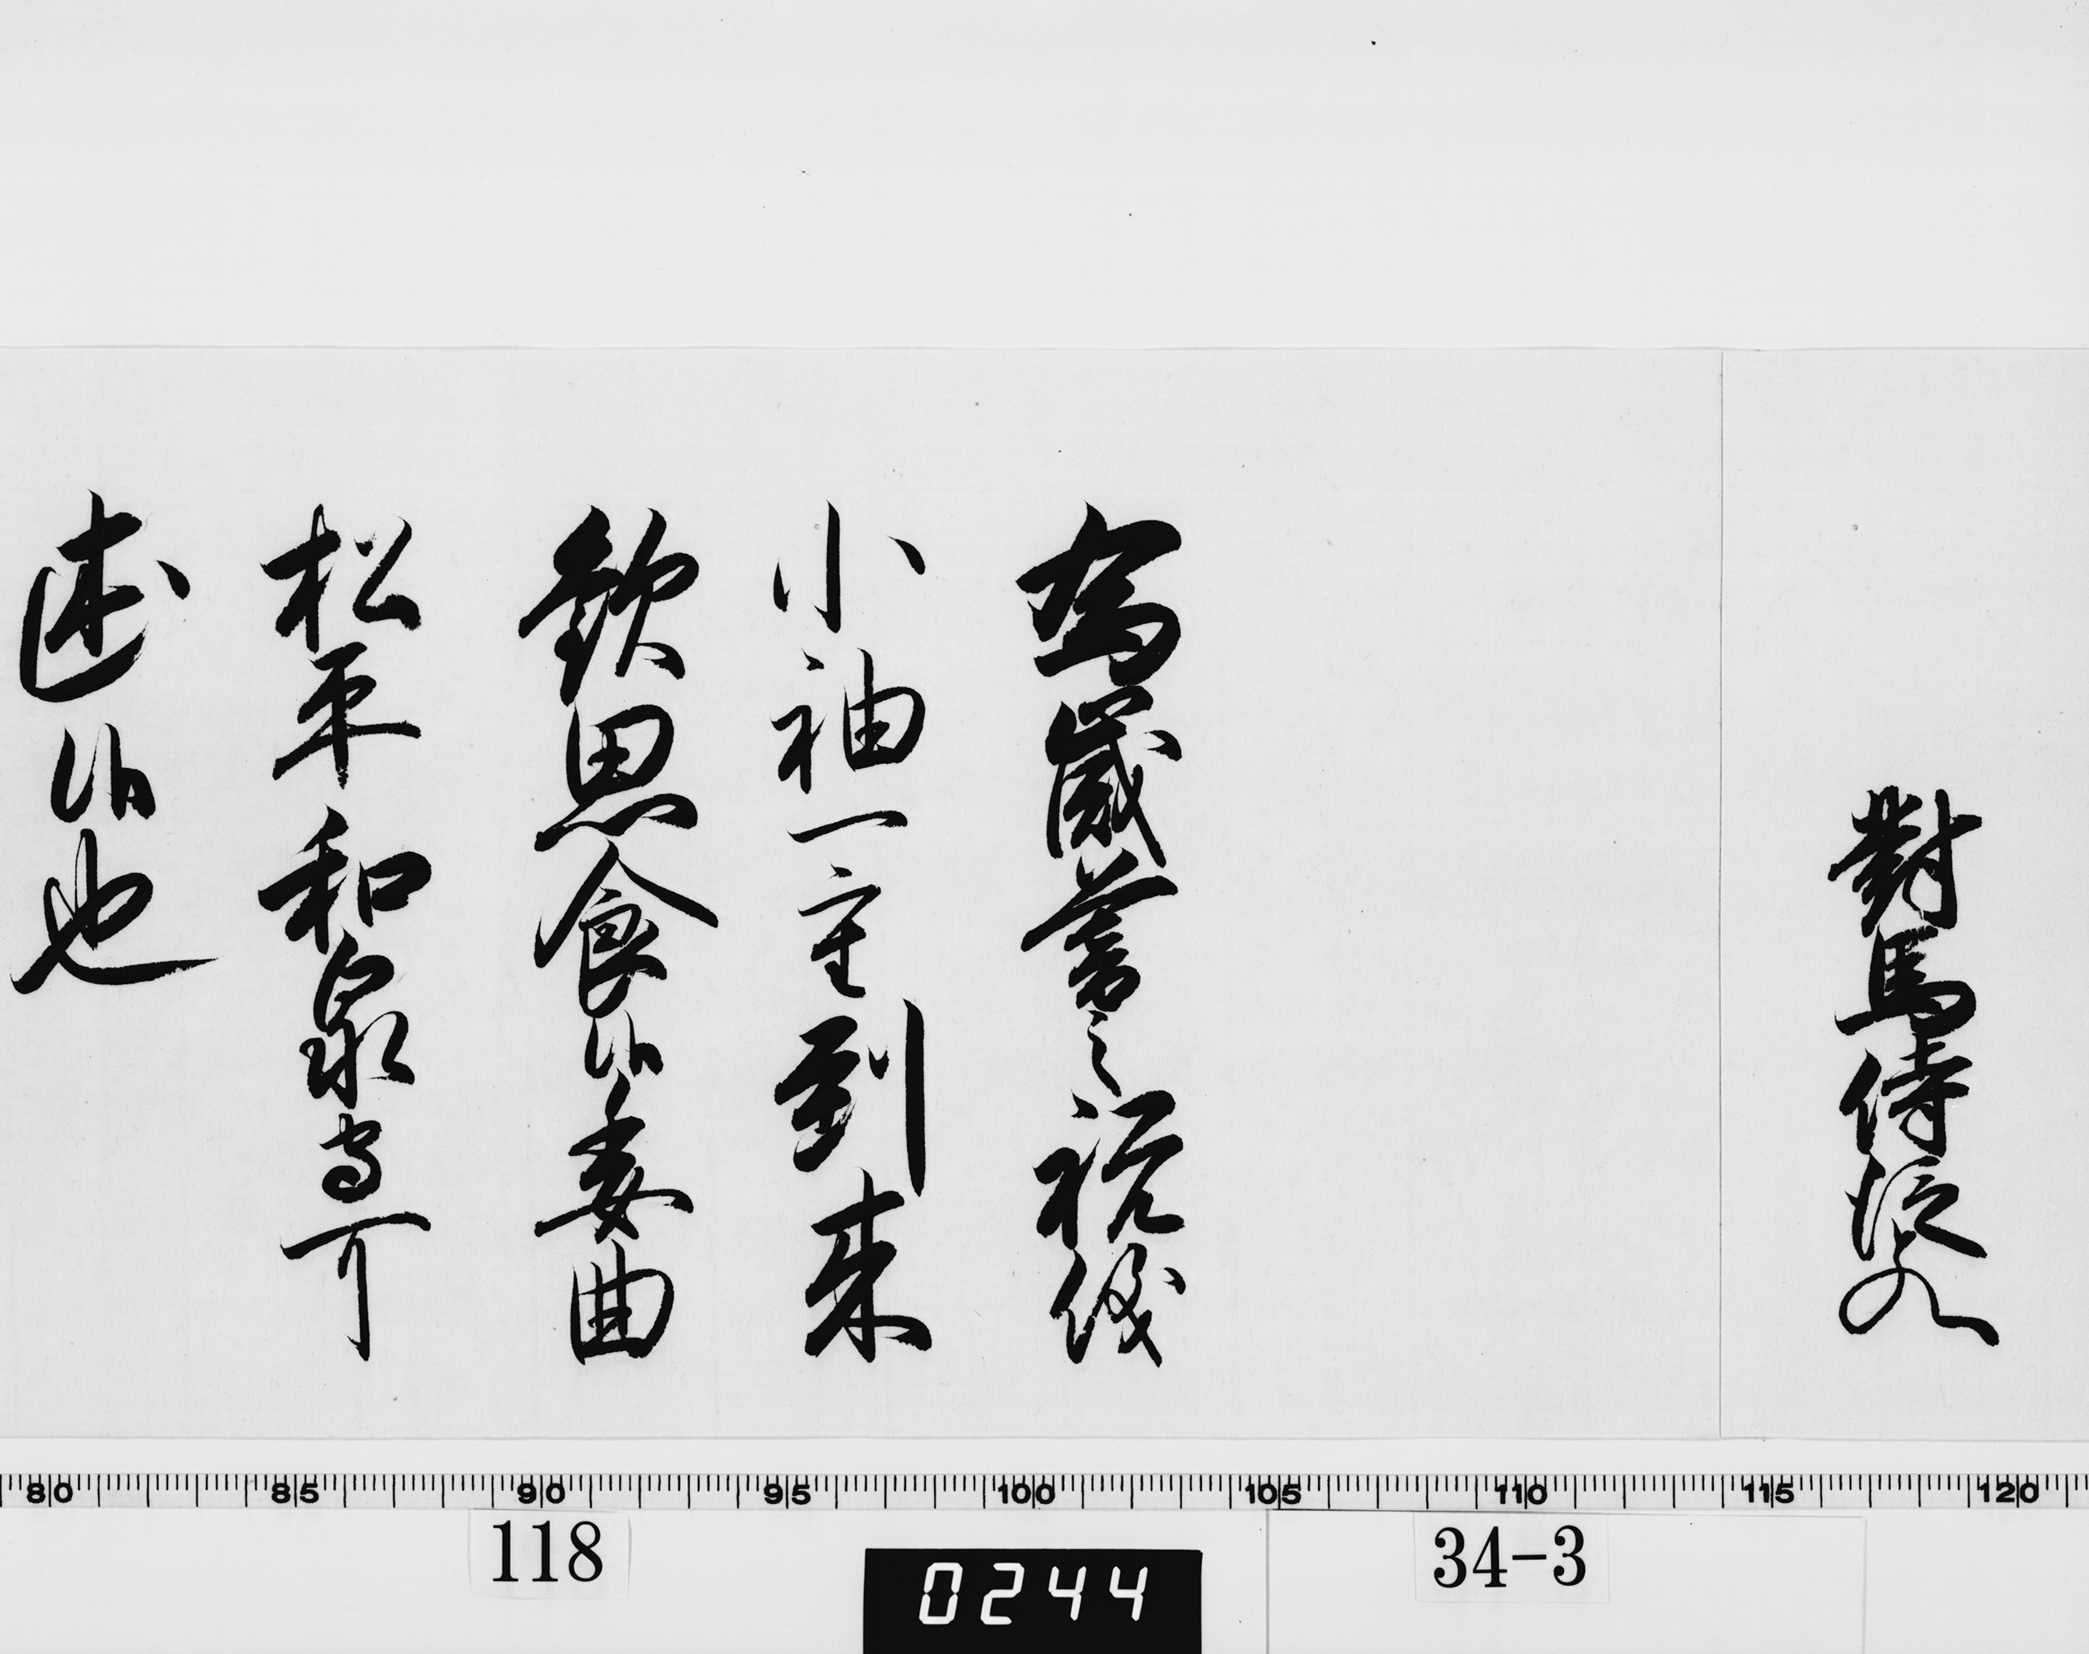 對馬侍従殿
為歳暮之祝儀
小袖一重到来
歓思食候委曲
松平和泉守可
述候也
80 85 90 95 100 105 110 115 120
118
0244
34-3